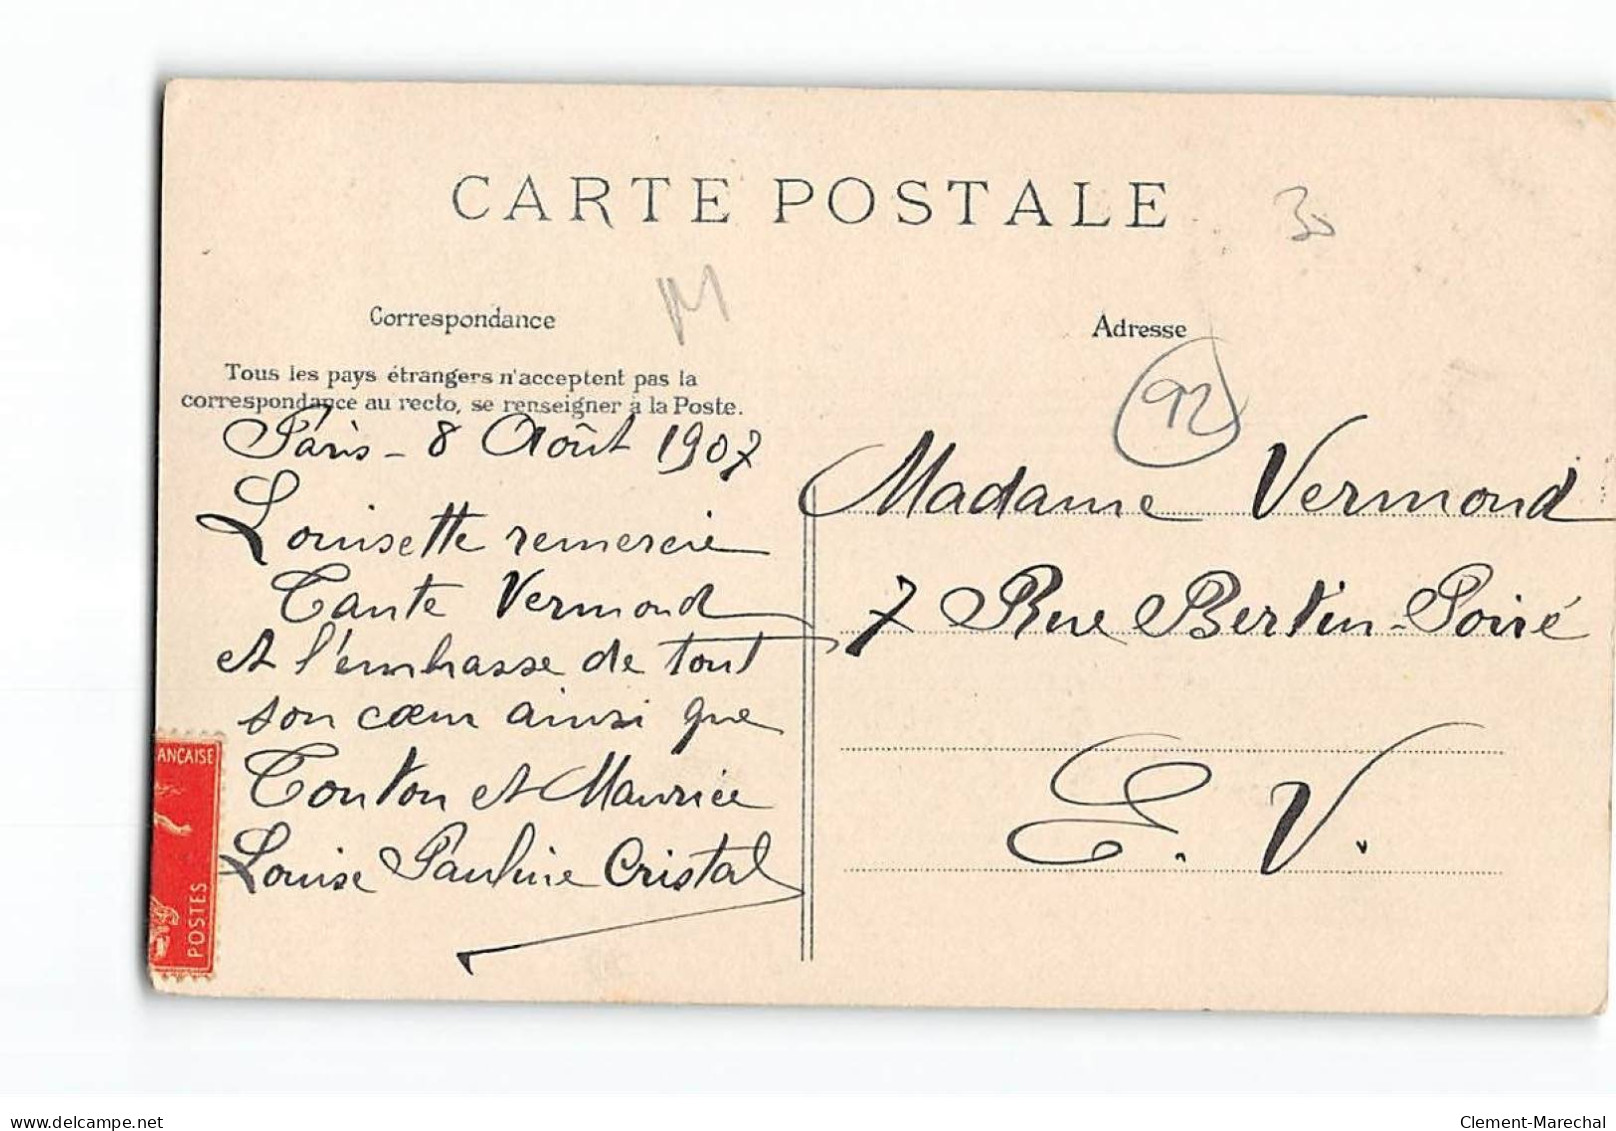 CARTE POSTALE
30
M
Correspondance
Tous les pays étrangers n'acceptent pas la
correspondance au recto, se renseigner à la Poste.
Paris - 8 Août 1907
Louisette remercie
Tante Vermond
et l'embrasse de tout
son cœur ainsi que
Tonton et Maurice
Louise Pauline Cristal
ANÇAISE
POSTES
Adresse
92
Madame Vermond
7 Rue Bertin-Poiré
E. V.
delcampe.net
Clement-Marechal